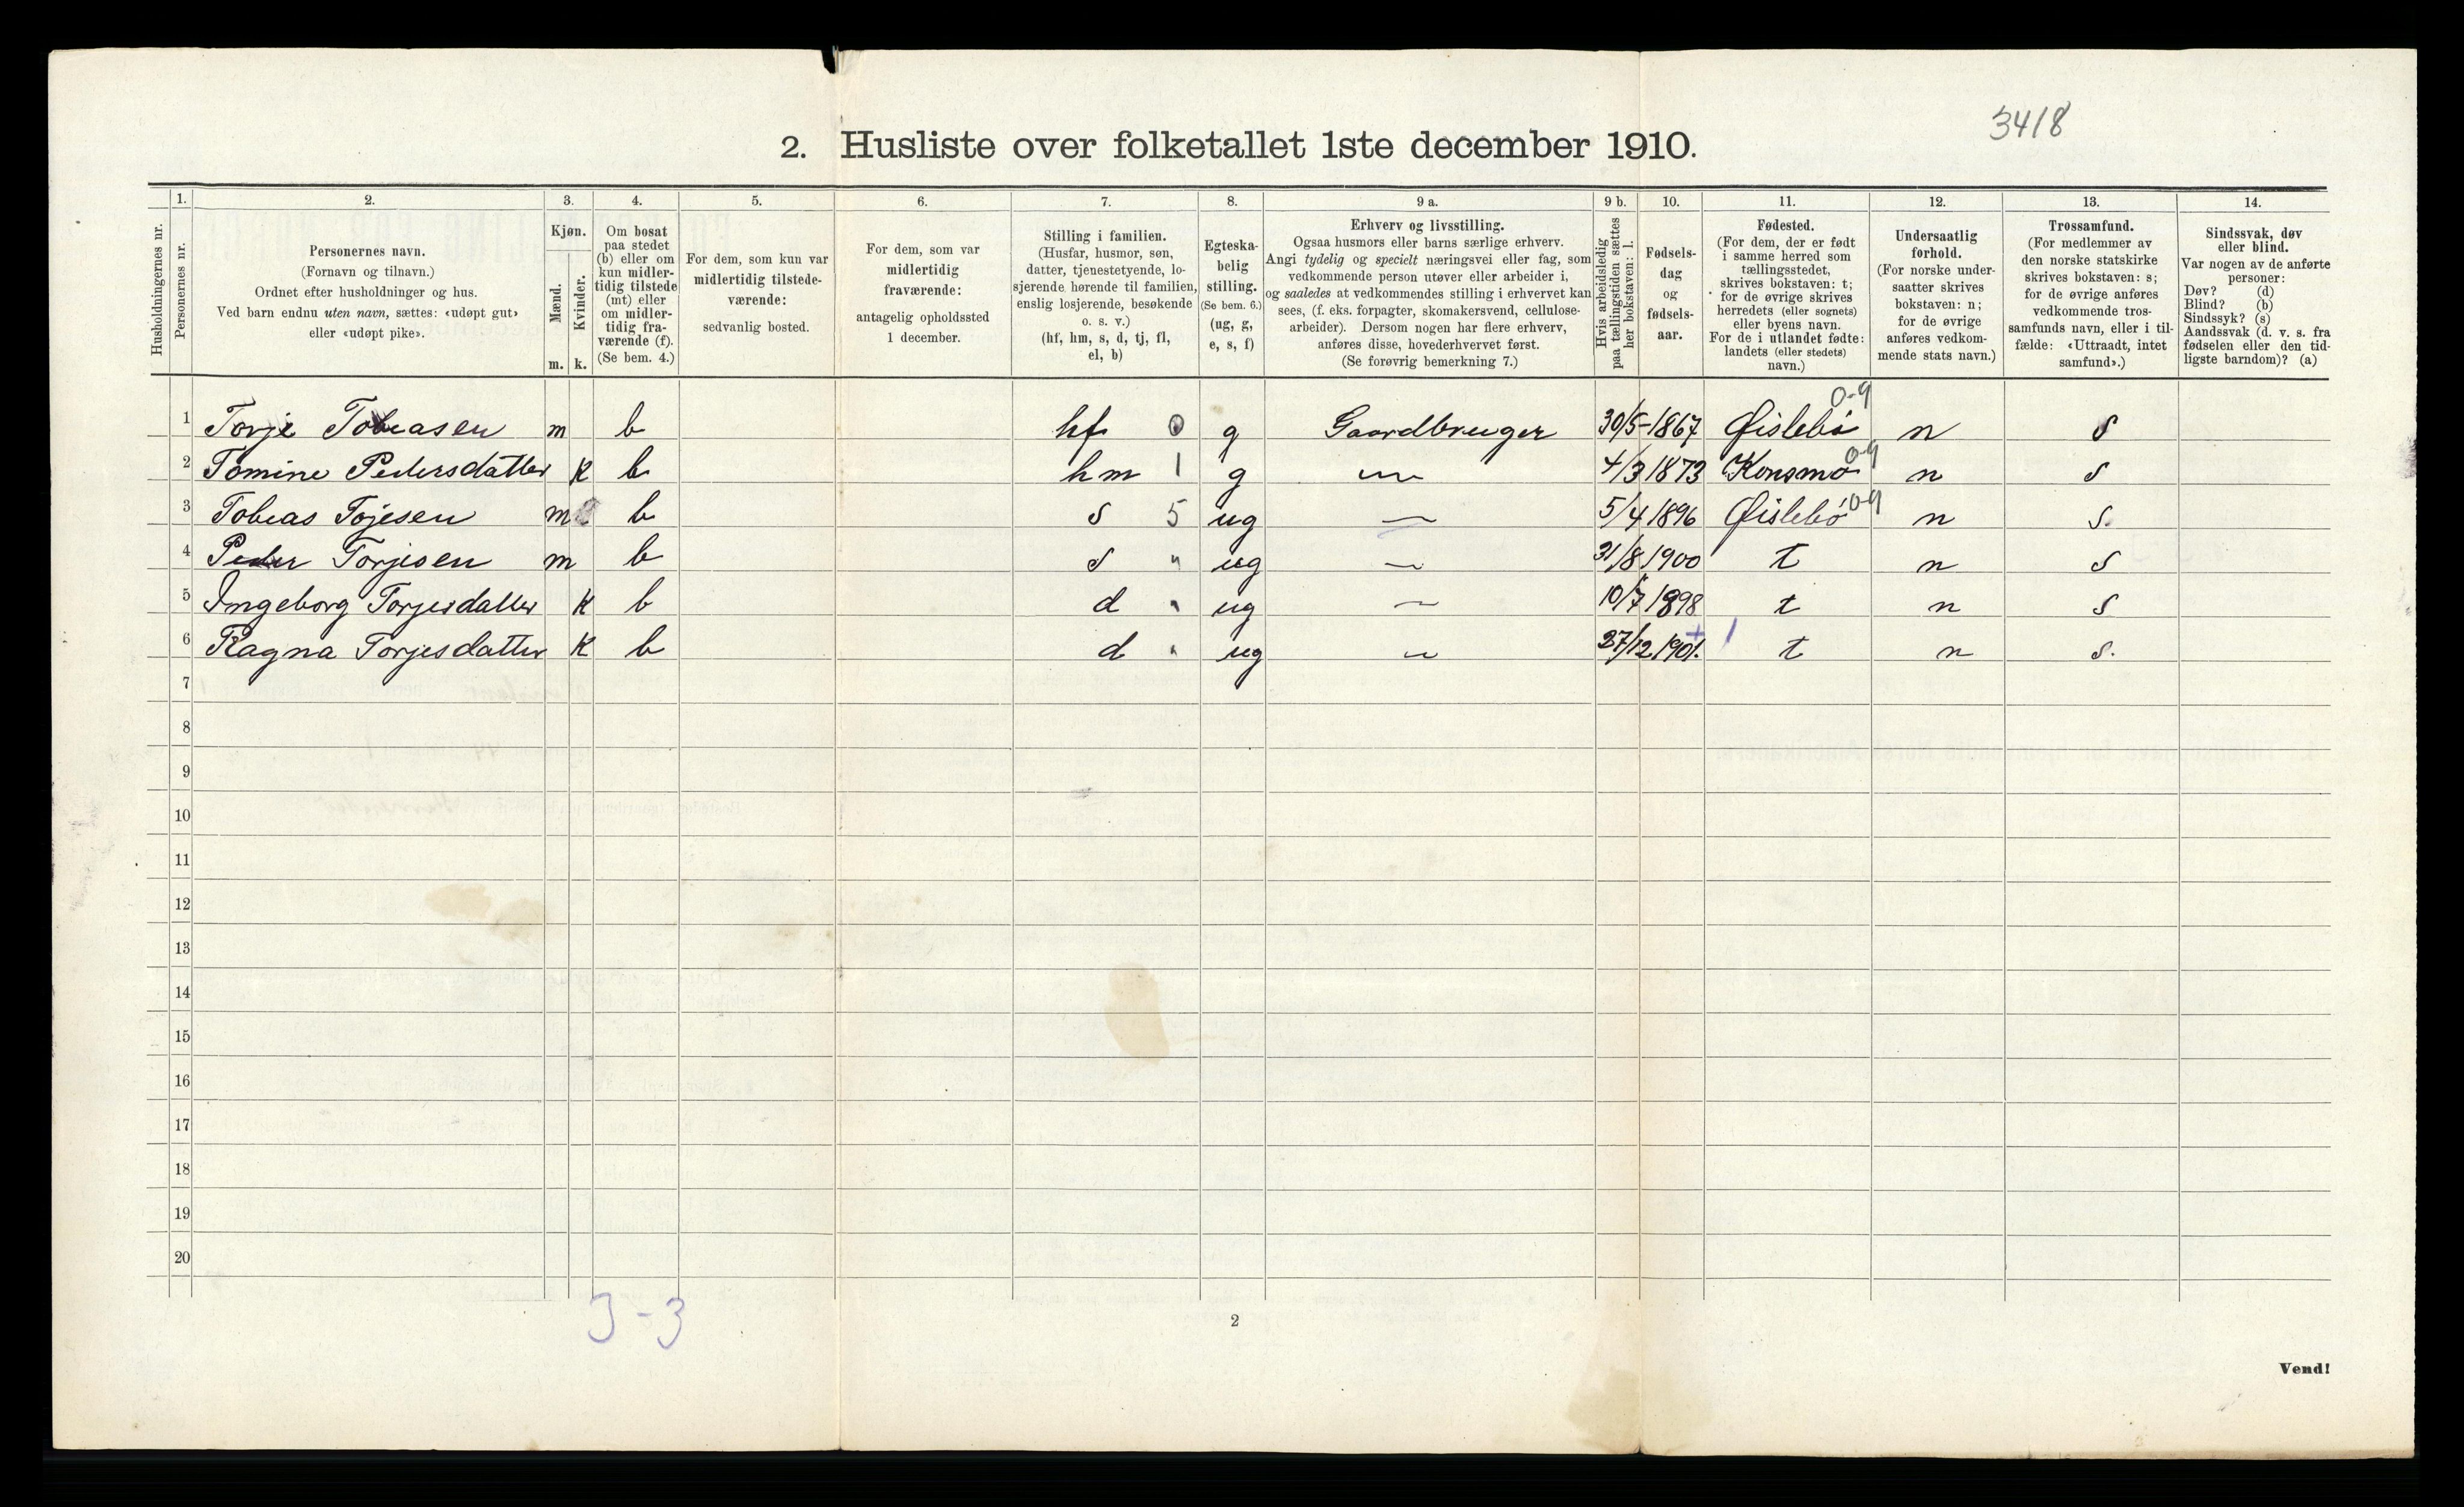 3418
2. Husliste over folketallet 1ste december 1910.
1. 2. 3. 4. 5. 6. 7. 8. 9 a. 9 b. 10. 11. 12. 13. 14.
Husholdningernes nr.
Personernes nr.
Personernes navn.
(Fornavn og tilnavn.)
Ordnet efter husholdninger og hus.
Ved barn endnu uten navn, sættes: «udøpt gut»
eller «udøpt pike».
Kjøn.
Mænd.
Kvinder.
m. k.
Om bosat
paa stedet
(b) eller om
kun midler-
tidig tilstede
(mt) eller
om midler-
tidig fra-
værende (f).
(Se bem. 4.)
For dem, som kun var
midlertidig tilstede-
værende:
sedvanlig bosted.
For dem, som var
midlertidig
fraværende:
antagelig opholdssted
1 december.
Stilling i familien.
(Husfar, husmor, søn,
datter, tjenestetyende, lo-
sjerende hørende til familien,
enslig losjerende, besøkende
o. s. v.)
(hf, hm, s, d, tj, fl,
el, b)
Egteska-
belig
stilling.
(Se bem. 6.)
(ug, g,
e, s, f)
Erhverv og livsstilling.
Ogsaa husmors eller barns særlige erhverv.
Angi tydelig og specielt næringsvei eller fag, som
vedkommende person utøver eller arbeider i,
og saaledes at vedkommendes stilling i erhvervet kan
sees, (f. eks. forpagter, skomakersvend, cellulose-
arbeider). Dersom nogen har flere erhverv,
anføres disse, hovederhvervet først.
(Se forøvrig bemerkning 7.)
Hvis arbeidsledig
paa tællingstiden sættes
her bokstaven: l.
Fødsels-
dag
og
fødsels-
aar.
Fødested.
(For dem, der er født
i samme herred som
tællingsstedet,
skrives bokstaven: t;
for de øvrige skrives
herredets (eller sognets)
eller byens navn.
For de i utlandet fødte:
landets (eller stedets)
navn.)
Undersaatlig
forhold.
(For norske under-
saatter skrives
bokstaven: n;
for de øvrige
anføres vedkom-
mende stats navn.)
Trossamfund.
(For medlemmer av
den norske statskirke
skrives bokstaven: s;
for de øvrige anføres
vedkommende tros-
samfunds navn, eller i til-
fælde: «Uttraadt, intet
samfund».)
Sindssvak, døv
eller blind.
Var nogen av de anførte
personer:
Døv? (d)
Blind? (b)
Sindssyk? (s)
Aandssvak (d. v. s. fra
fødselen eller den tid-
ligste barndom)? (a)
1 Torje Tobiasen m b hf 0 g Gaardbruger 30/5-1867 Øislebö 0-9 n s
2 Tomine Pedersdatter k b hm 1 g — 4/3 1873 Konsmo 0-9 n s
3 Tobias Tojesen m b s 5 ug — 5/4 1896 Øislebö 0-9 n s.
4 Peder Torjesen m b s " ug — 31/8 1900 t n s
5 Ingeborg Torjesdatter k b d " ug — 10/7 1898 t n s
6 Ragna Torjesdatter k b d " ug — 27/12 1901. t n s.
7
8
9
10
11
12
13
14
15
16
17
18
19
20
3-3
2
Vend!